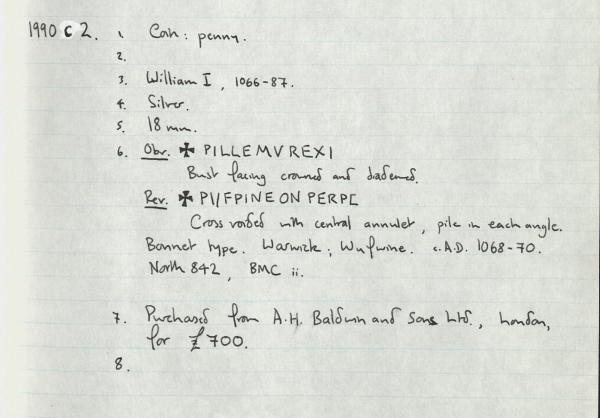 1990 C 2. 1. Coin : penny.
2.
3. William I , 1066-87.
4. Silver.
5. 18 mm.
6. Obv. ✠ PILLEMV REXI
Bust facing crowned and diademed.
Rev. ✠ PI/FPINE ON PERPC
Cross voided with central annulet , pile in each angle.
Bonnet type. Warwick ; Wulfwine. c.A.D. 1068-70.
North 842 , BMC ii.
7. Purchased from A.H. Baldwin and Sons Ltd., London,
for £700.
8.